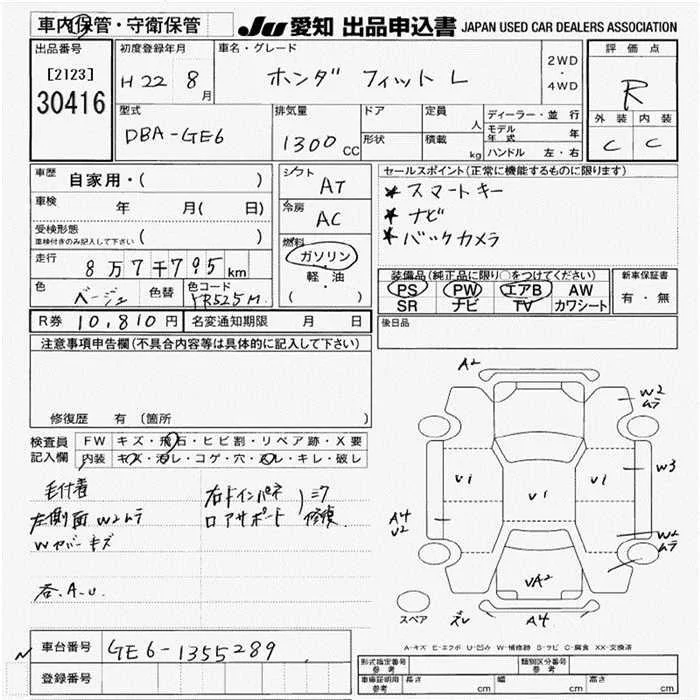 車内保管・守衛保管
JU 愛知 出品申込書 JAPAN USED CAR DEALERS ASSOCIATION
出品番号
[2123]
30416
初度登録年月
H 22 8月
車名・グレード
ホンダ フィット L
2WD
・
4WD
評価点
R
外装 内装
C C
型式
DBA-GE6
排気量
1300 CC
ドア
形状
定員 人
積載 kg
ディーラー・並行
モデル年式 年
ハンドル 左・右
車歴 自家用・( )
車検 年 月( 日)
受検形態
車検付きのみ記入して下さい ( )
走行 8万7千795km
色 ベージュ 色替 色コード YR525M
シフト AT
冷房 AC
燃料 ガソリン
・
軽・油
( )
セールスポイント(正常に機能するものに限ります)
★スマートキー
★ナビ
★バックカメラ
装備品(純正品に限り○をつけてください)
PS PW エアB AW
SR ナビ TV カワシート
新車保証書
有・無
後日品
R券 10,810円 名変通知期限 月 日
注意事項申告欄(不具合内容等は具体的に記入して下さい)
修復歴 有(箇所 )
検査員 FW キズ・飛石・ヒビ割・リペア跡・X要
記入欄 内装 キズ・汚レ・コゲ・穴・スレ・キレ・破レ
毛付着
左側面 W2ムラ
Wカバーキズ
各.A.U.
右ドインパネ
ロアサポート
ミク
修復
A2
W2
ムラ
V1 V1 V1
W3
A4
V2
W2
ムラ
VA2
ズレ
A4
スペア
A-キズ E-エクボ U-凹み W-補修跡 S-サビ C-腐食 XX-交換済
車台番号 GE6-1355289
登録番号
形式指定番号 参考
類別区分番号 参考
車庫証明用 参考 長さ cm 幅 cm 高さ cm